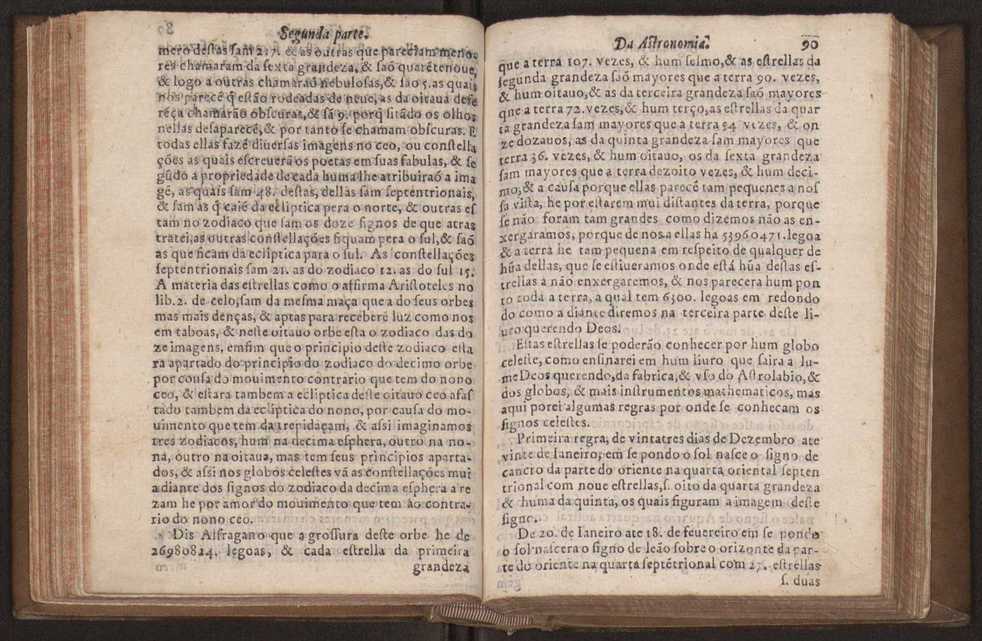 Segunda parte.
mero destas sam 217. & as outras que pareciam meno-
res chamaram da sexta grandeza, & saõ quarẽtenoue,
& logo a outras chamaraõ nebulosas, & saõ 5. as quais
nos parecẽ q̃ estão rodeadas de neue, as da oitaua dese
reça chamarão obscuras, & sã 9. porq̃ sitãdo os olhos
nellas desaparecẽ, & por tanto se chamam obscuras. E
todas ellas fazẽ diuersas imagens no ceo, ou constella
ções as quais escreuerã os poetas em suas fabulas, & se
gũdo a propriedade de cada huma lhe atribuiraõ a ima
gẽ, as quais sam 48. destas, dellas sam septentrionais,
& sam as q̃ caiẽ da ecliptica pera o norte, & outras es
tam no zodiaco que sam os doze signos de que atras
tratei, as outras constellações fiquam pera o sul, & saõ
as que ficam da ecliptica para o sul. As constellações
septentrionais sam 21. as do zodiaco 12. as do sul 15.
A materia das estrellas como o affirma Aristoteles no
lib. 2. de celo, sam da mesma maça que a do seus orbes
mas mais denças, & aptas para receberẽ luz como nos
em taboas, & neste oitauo orbe esta o zodiaco das do
ze imagens, emfim que o principio deste zodiaco esta
ra apartado do principio do zodiaco do decimo orbe
por cousa do mouimento contrario que tem do nono
ceo, & estara tambem a ecliptica deste oitauo ceo afas
tado tambem da ecliptica do nono, por causa do mo-
uimento que tem da trepidaçam, & assi imaginamos
tres zodiacos, hum na decima esphera, outro na no-
na, outro na oitaua, mas tem seus principios aparta-
dos, & assi nos globos celestes vã as constellações mui
a diante dos signos do zodiaco da decima esphera a re
zam he por amor do mouimento que tem ao contra-
rio do nono ceo.
Dis Alfragano que a grossura deste orbe he de
26980814. legoas, & cada estrella da primeira
grandeza
Da Astronomia. 90
que a terra 107. vezes, & hum sesmo, & as estrellas da
segunda grandeza saõ mayores que a terra 90. vezes,
& hum oitauo, & as da terceira grandeza saõ mayores
que a terra 72. vezes, & hum terço, as estrellas da quar
ta grandeza sam mayores que a terra 54 vezes, & on
ze dozauos, as da quinta grandeza sam mayores que
terra 36. vezes, & hum oitauo, os da sexta grandeza
sam mayores que a terra dezoito vezes, & hum deci-
mo, & a causa porque ellas parecẽ tam pequenes a nos
sa vista, he por estarem mui distantes da terra, porque
se não foram tam grandes como dizemos não as en-
xergaramos, porque de nos a ellas ha 53960471. legoa
& a terra he tam pequena em respeito de qualquer de
hũa dellas, que se estiueramos onde está hũa destas es-
trellas a não enxergaremos, & nos parecera hum pon
to toda a terra, a qual tem 6300. legoas em redondo
do como a diante diremos na terceira parte deste li-
uro querendo Deos.
Estas estrellas se poderão conhecer por hum globo
celeste, como ensinarei em hum liuro que saira a lu-
me Deos querendo, da fabrica, & vso do Astrolabio, &
dos globos, & mais instrumentos mathematicos, mas
aqui porei algumas regras por onde se conhecam os
signos celestes.
Primeira regra, de vintatres dias de Dezembro ate
vinte de Ianeiro, em se pondo o sol nasce o signo de
cancro da parte do oriente na quarta oriental septen
trional com noue estrellas, s. oito da quarta grandeza
& huma da quinta, os quais figuram a imagem deste
signo.
De 20. de Ianeiro ate 18. de feuereiro em se pondo
o sol nascera o signo de leão sobre o orizonte da par-
te do oriente na quarta septẽtrional com 27. estrellas
s. duas